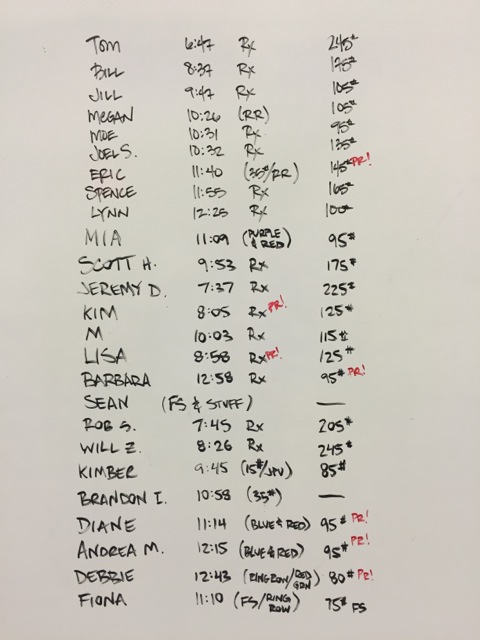 TOM 6:47 Rx 245#
BILL 8:37 Rx 175#
JILL 9:47 Rx 105#
MEGAN 10:26 (RR) 105#
MOE 10:31 Rx 95#
JOEL S. 10:32 Rx 135#
ERIC 11:40 (35#/RR) 145# PR!
SPENCE 11:55 Rx 165#
LYNN 12:25 Rx 100#
MIA 11:09 (PURPLE & RED) 95#
SCOTT H. 9:53 Rx 175#
JEREMY D. 7:37 Rx 225#
KIM 8:05 Rx PR! 125#
M 10:03 Rx 115#
LISA 8:58 Rx PR! 125#
BARBARA 12:58 Rx 95# PR!
SEAN (FS & STUFF) —
ROB S. 7:45 Rx 205#
WILL Z. 8:26 Rx 245#
KIMBER 9:45 (15#/JPU) 85#
BRANDON I. 10:58 (35#) —
DIANE 11:14 (BLUE & RED) 95# PR!
ANDREA M. 12:15 (BLUE & RED) 95# PR!
DEBBIE 12:43 (RING ROW/RED GRN) 80# PR!
FIONA 11:10 (FS/RING ROW) 75# FS